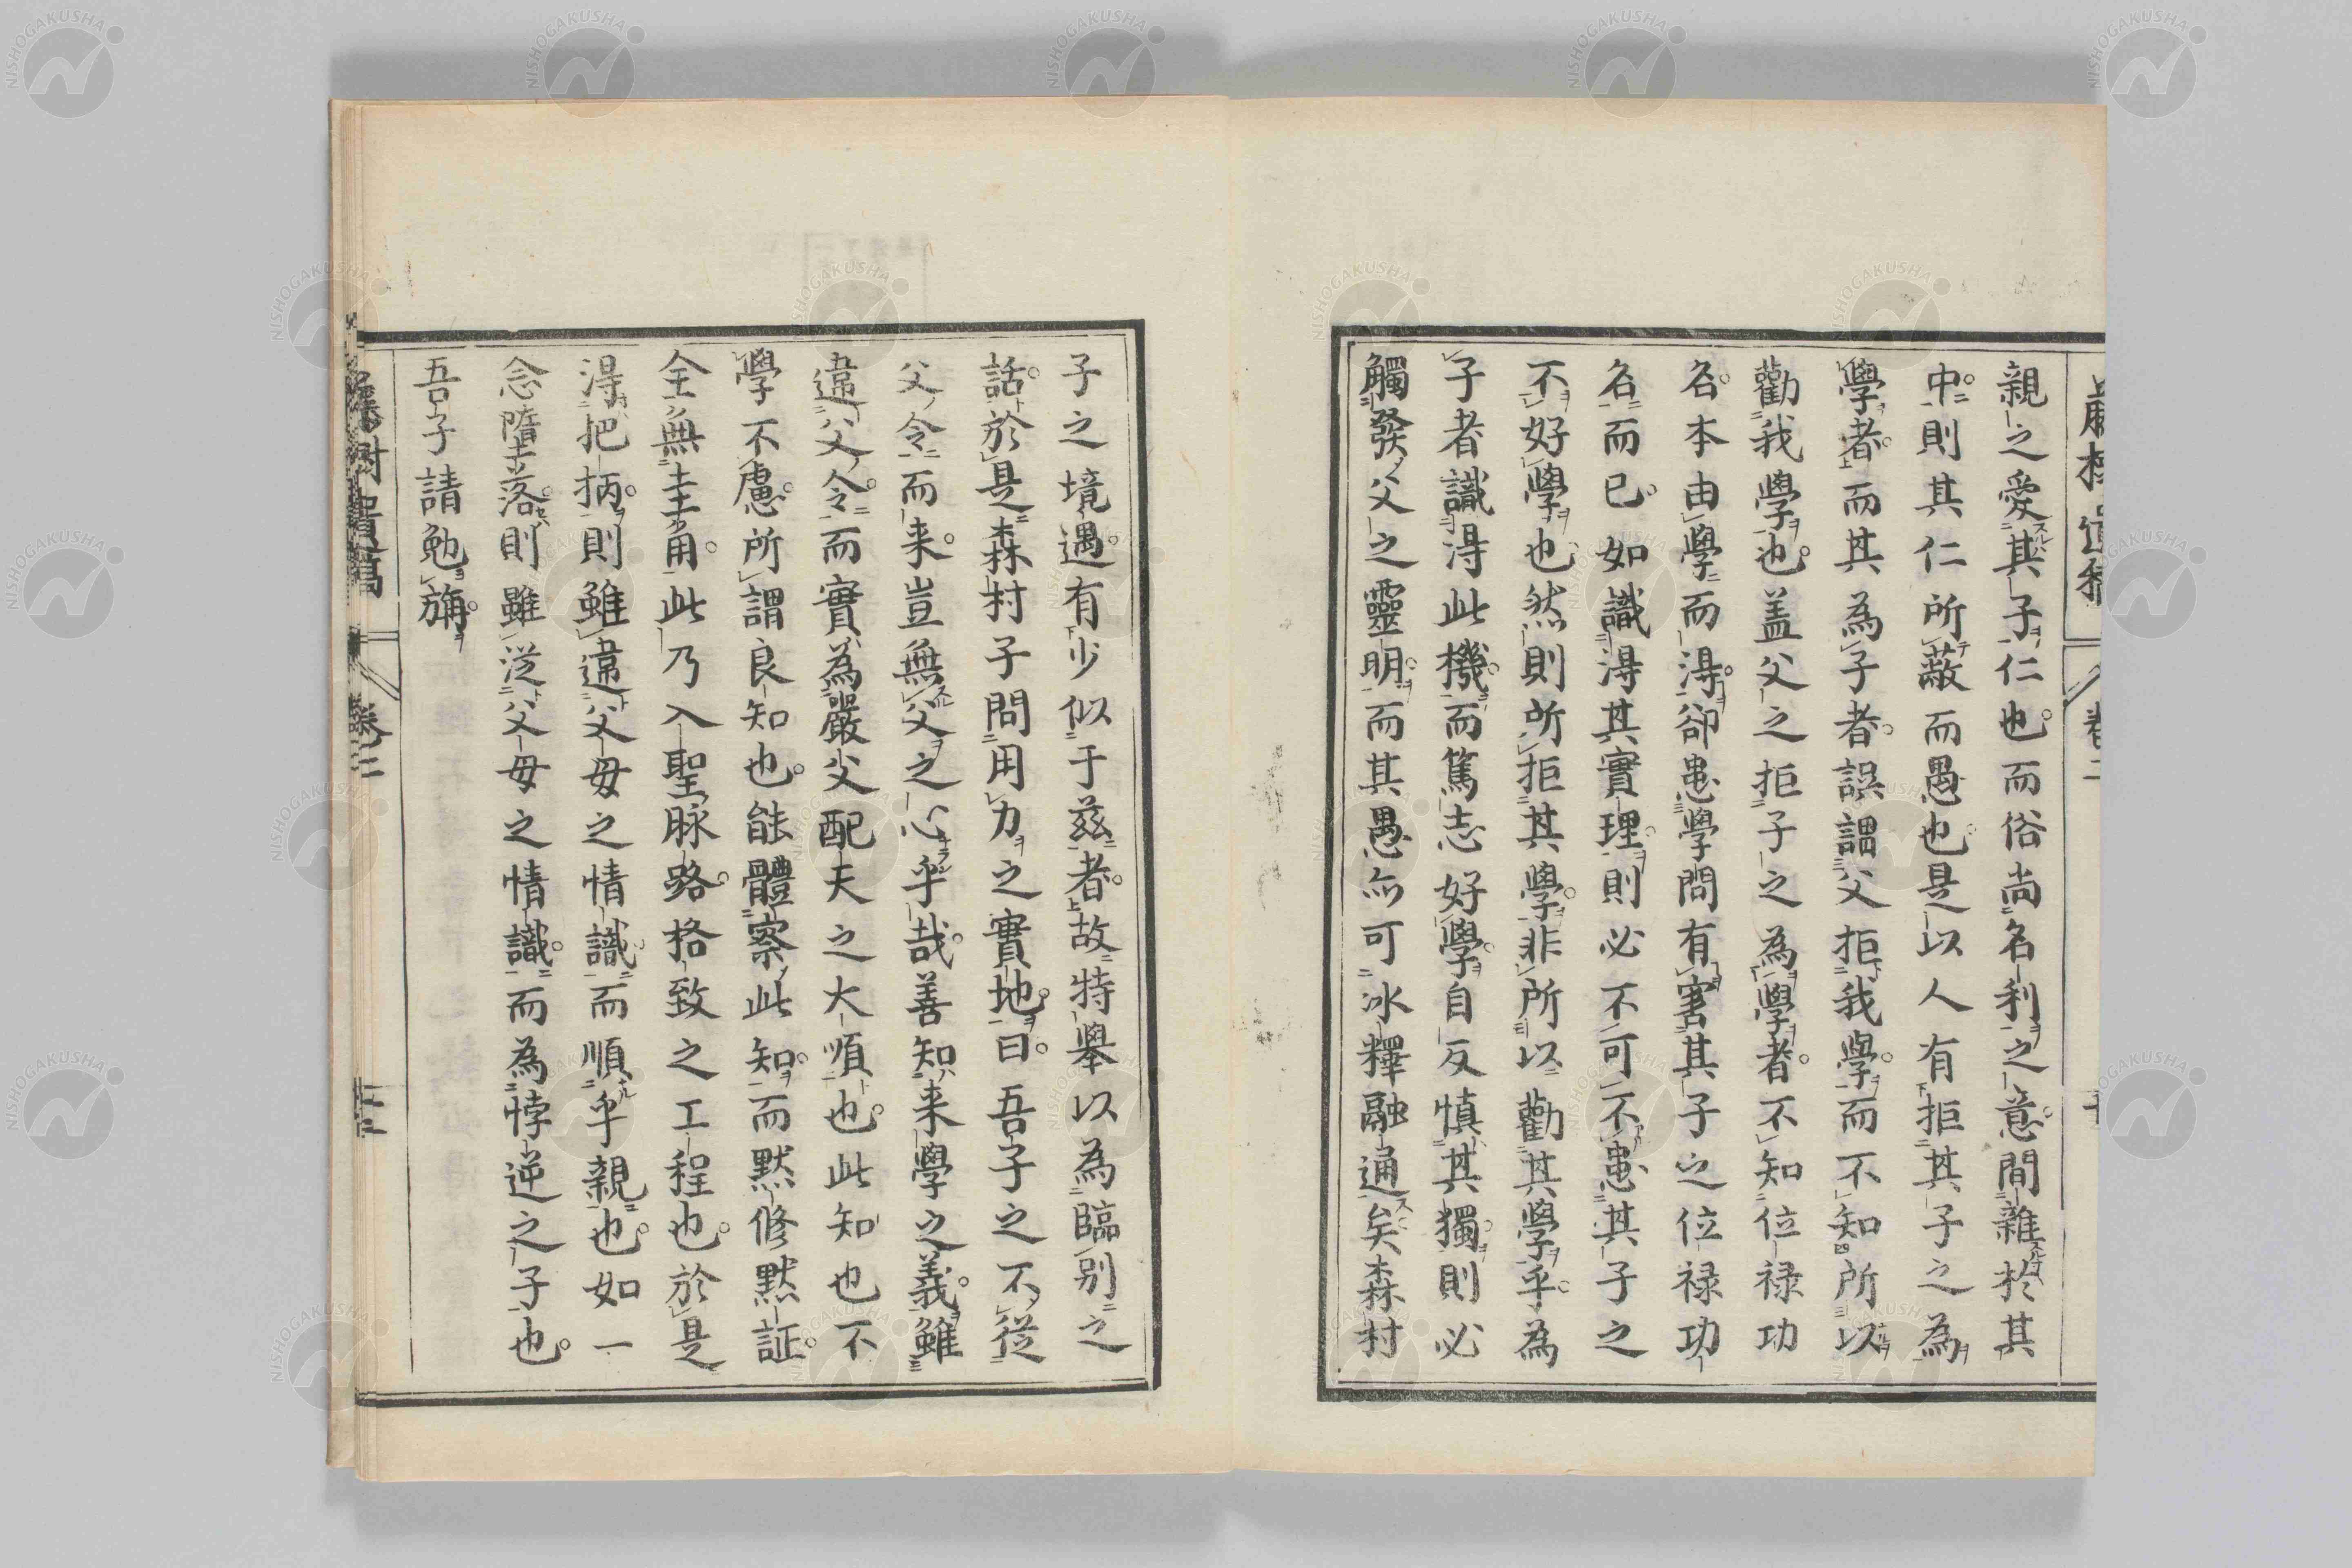 親之愛其子仁也而俗尚名利之意間雜於其
中則其仁所蔽而愚也是以人有拒其子之為
學者而其為子者誤謂父拒我學而不知所以
勸我學也盖父之拒子之為學者不知位祿功
名本由學而得卻患學問有害其子之位祿功
名而已如識得其實理則必不可不患其子之
不好學也然則所拒其學非所以勸其學乎為
子者識得此機而篤志好學自反慎其獨則必
觸發父之靈明而其愚亦可冰釋融通矣森村
子之境遇有少似于茲者故特舉以為臨別之
話於是森村子問用力之實地曰吾子之不從
父令而来豈無父之心乎哉善知来學之義雖
違父令而實為嚴父配天之大順也此知也不
學不慮所謂良知也能體察此知而默修默証
全無圭角此乃入聖脉路格致之工程也於是
得把柄則雖違父母之情識而順乎親也如一
念墮落則雖從父母之情識而為悖逆之子也
吾子請勉旃
卷二
NISHOGAKUSHA